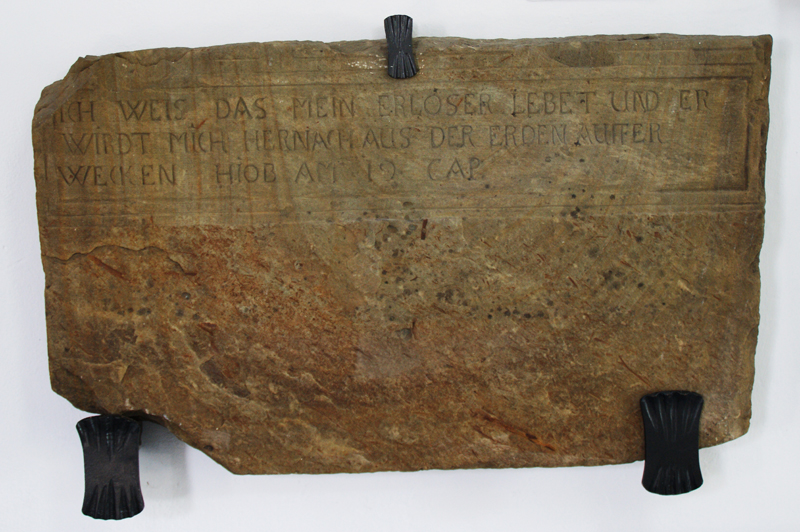 ICH WEIS DAS MEIN ERLÖSER LEBET UND ER
WIRDT MICH HERNACH AUS DER ERDEN AUFFER
WECKEN HIOB AM 19 CAP.